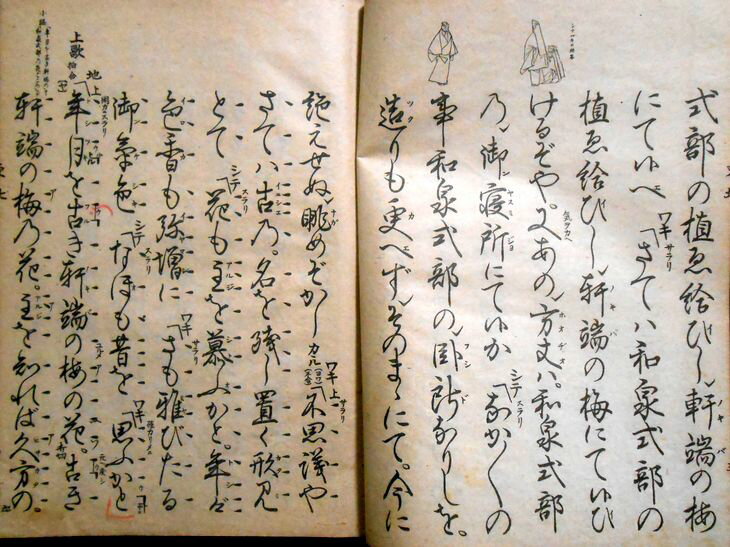 式部の植ゑ給ひし、軒端の梅
にて候へ ワキ サラリ「さてハ和泉式部の
植ゑ給ひし、軒端の梅にて候ひ
けるぞや。又あの、方丈ハ。和泉式部
乃、御寝所にて候か シテ スラリ「なか〳〵の
事和泉式部の、臥所なりしを。
造りも更へず、そのまゝにて。今に
絶えせぬ、眺めぞかし カル ワキ 上 サラリ「不思議や
さてハ古乃。名を残し置く形見
とて シテ スラリ「花も主を慕ふかと。年々
色香も弥増に ワキ サラリ「さも雅びたる
御気色 シテ サラリ「なほも昔を ワキ「思ふかと
上歌 拍合 地 上「年月を古き軒端の梅の花。古き
軒端の梅乃花。主を知れば久方の。